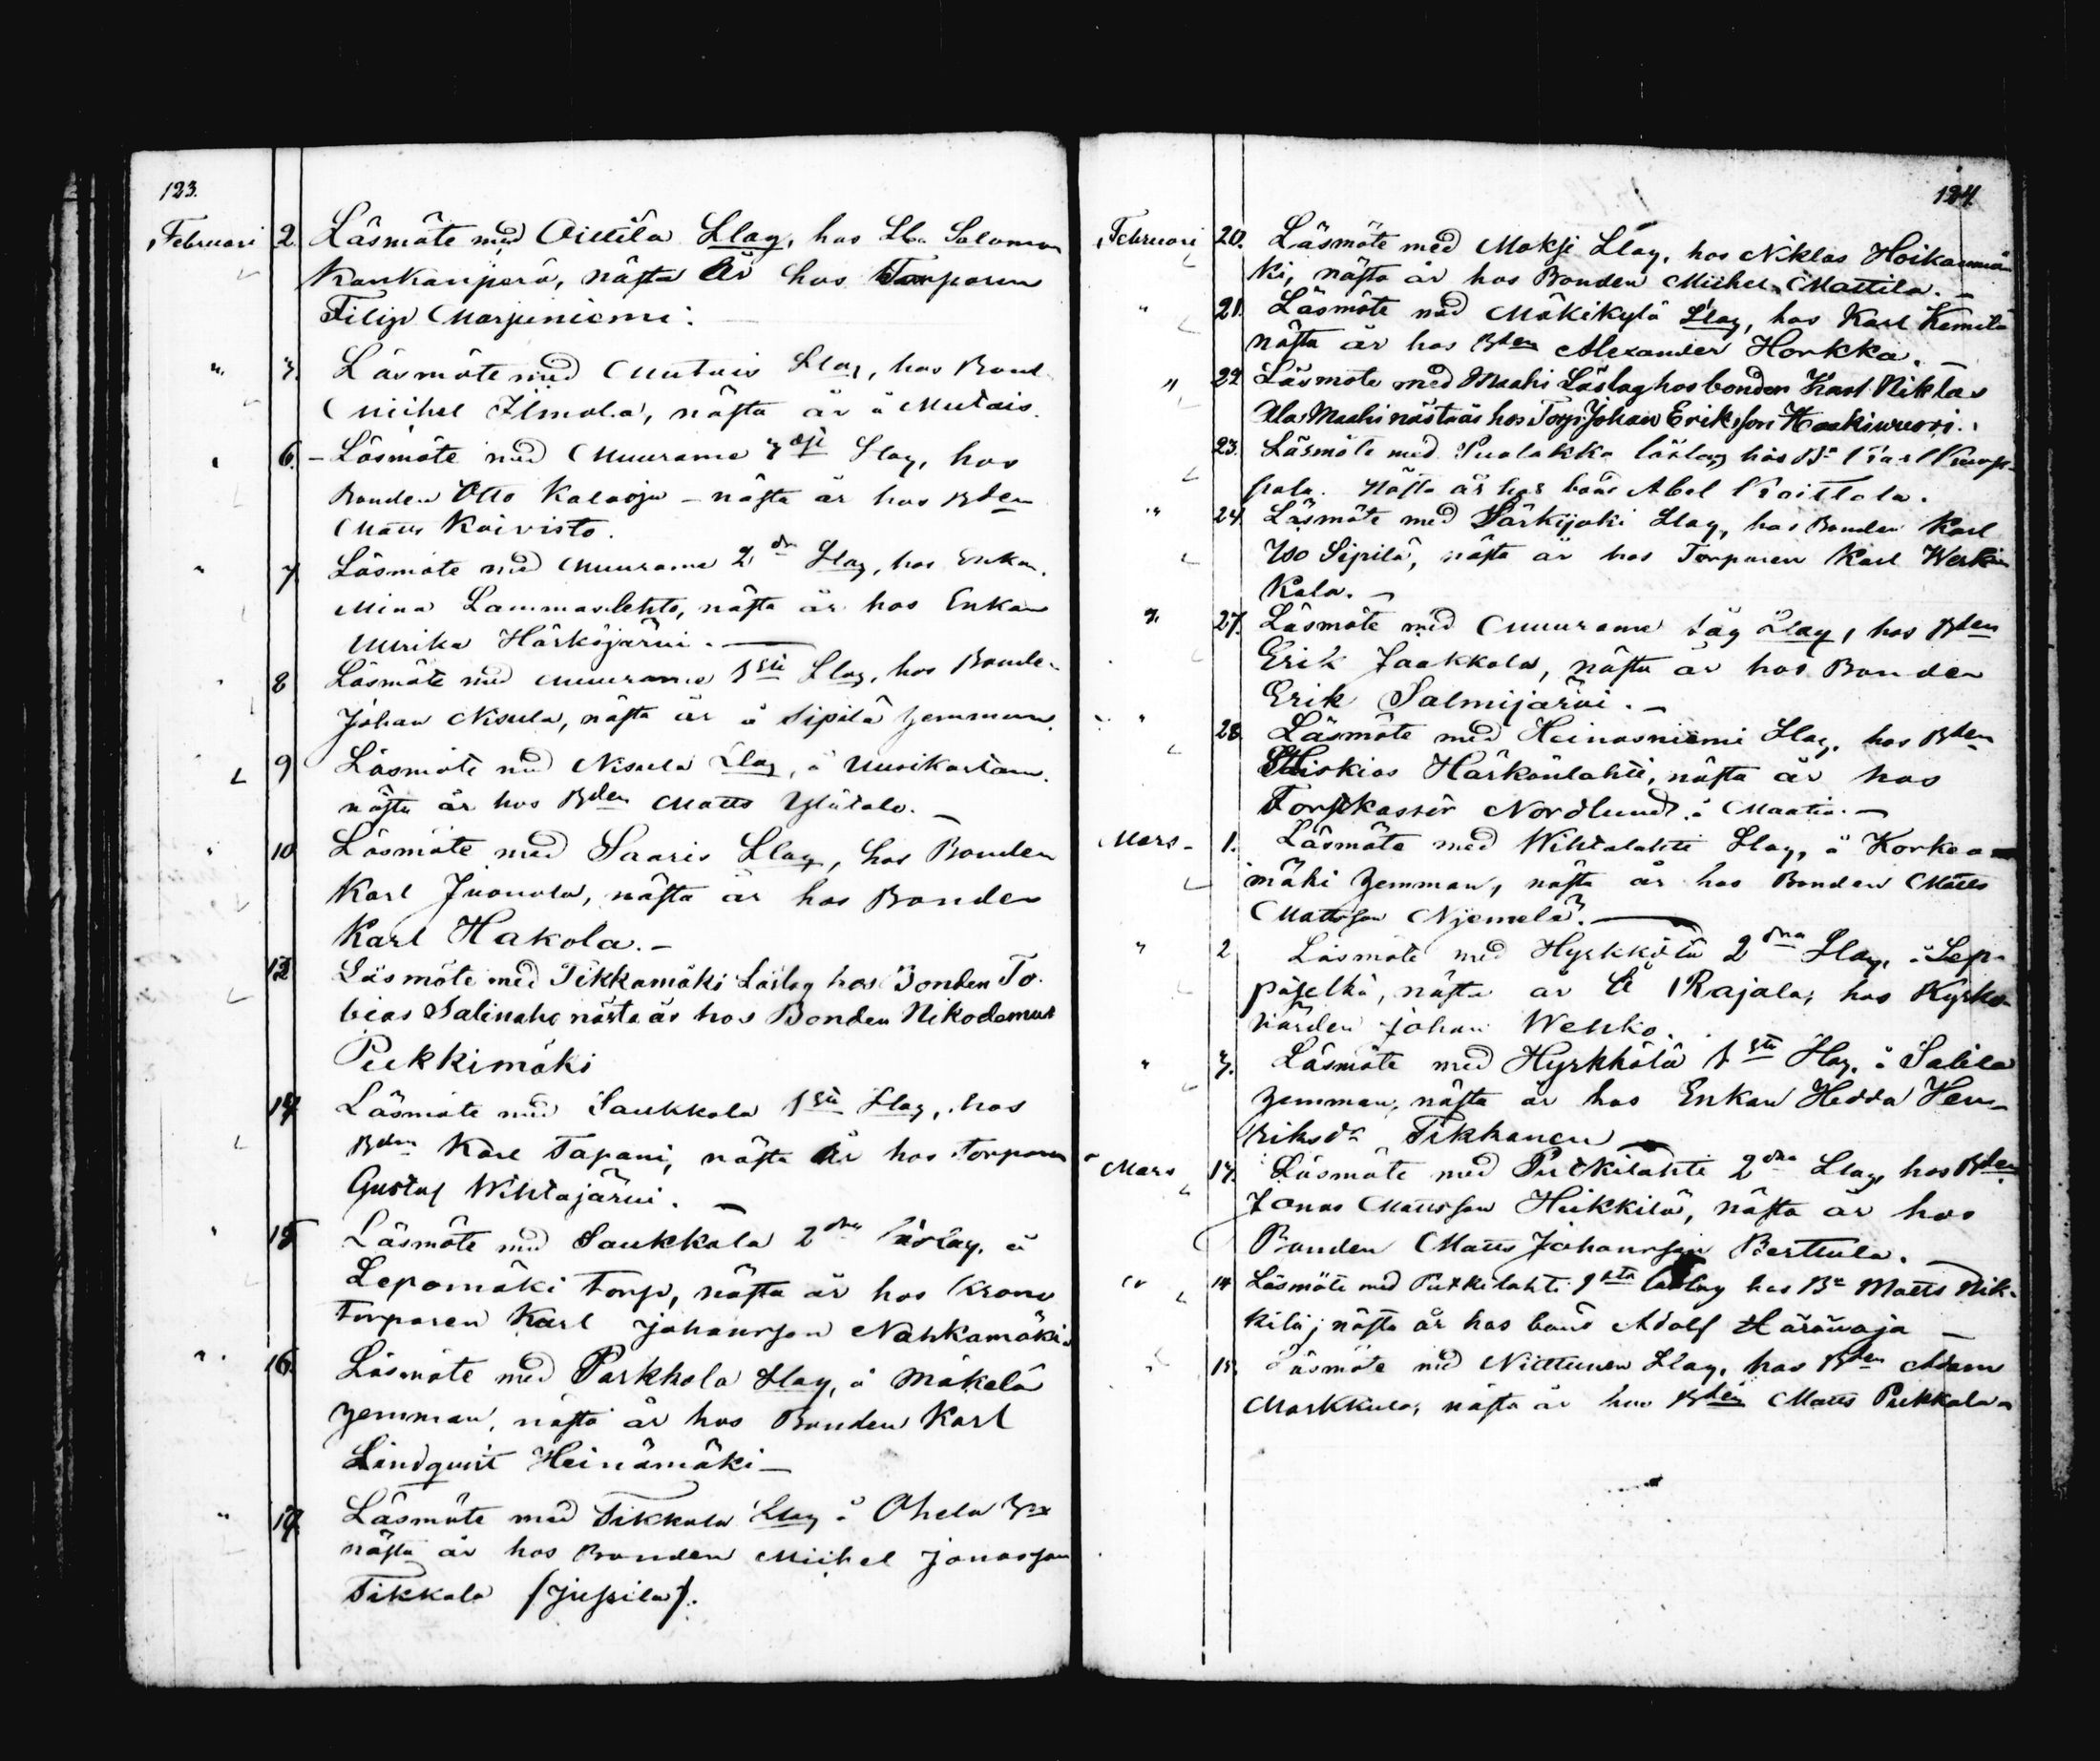 123.
Februari 2. Läsmöte med Oittila Llag, hos Lbe Salomon
Kankanperä, nästa år hos Torparen
Filip Marjoniemi.
" 3. Läsmöte med Mutais Llag, hos Bond
Michel Ilmola, nästa år å Mutais.
" 6. Läsmöte med Muurame 3dje Llag, hos
Bonden Otto Kalaoja - nästa år hos Bden
Matts Koivisto.
" 7. Läsmöte med Muurame 2dra Llag, hos Enkan
Mina Lammaslehto, nästa år hos Enkan
Ulrika Härköjärvi. -
" 8 Läsmöte med Muurame 1sta Llag, hos Bonden
Johan Nisula, nästa år å Sipilä hemman.
9 Läsmöte med Nisula Llag, å Uusikartano.
nästa år hos Bden Matts Ylitalo. -
" 10 Läsmöte med Saaris Llag, hos Bonden
Karl Juonola, nästa år hos Bonden
Karl Hakola. -
13 Läsmöte med Tikkamäki Läslag hos Bonden To-
bias Salinaho nästa år hos Bonden Nikodemus
Pukkimäki
14 Läsmöte med Saukkola 1sta Llag, hos
Bden Karl Tapani, nästa år hos Torparen
Gustaf Wihtajärvi. -
" 15 Läsmöte med Saukkola 2dra Läslag, å
Lepomäki torp, nästa år hos Krono
torparen Karl Johansson Nahkamäki.
" 16. Läsmöte med Parkkola Llag, å Mäkelä
hemman, nästa år hos Bonden Karl
Lindqvist Heinämäki -
" 17. Läsmöte med Tikkala Llag å Ohela
nästa år hos Bonden Michel Jonasson
Tikkala (Jussila).
124
Februari 20. Läsmöte med Moksi Llag, hos Niklas Hoikanmä
ki, nästa år hos Bonden Michel Mattila. -
" 21. Läsmöte med Mäkikylä Llag, hos Karl Kemilä
nästa år hos Bden Alexander Horkka. -
" 22 Läsmöte med Maahi Läslag hos bonden Karl Niklas
Ala Maahi nästa år hos Torp. Johan Eriksson Haukiwuori.
23. Läsmöte med Sualakka läslag hos Bd Karl Knop-
pala. Nästa år hos bond Abel Koittola.
" 24. Läsmöte med Särkijoki Llag, hos Bonden Karl
Iso Sipilä, nästa år hos Torparen Karl Werkin
Kala. -
" 27. Läsmöte med Muurame såg Llag, hos Bden
Erik Jaakkola, nästa år hos Bonden
Erik Salmijärvi. -
" 28. Läsmöte med Heinosniemi Llag, hos Bden
Hiskias Härkönlahti, nästa år hos
Forstkassör Nordlund å Maatia. -
Mars - 1. Läsmöte med Wihtalahti Llag, å Korkea
mäki hemman, nästa år hos Bonden Matts
Mattsson Njemelä. -
" 2 Läsmöte med Hyrkkölä 2dra Llag, å Lep-
päselkä, nästa år å Rajala, hos Kyrko
värden Johan Wehko.
" 3. Läsmöte med Hyrkkölä 1sta Llag. å Salila
hemman, nästa år hos Enkan Hedda Hen-
riksdr Tikkanen -
Mars 13. Läsmöte med Putkilahti 2dra Llag, hos Bden
Jonas Mattsson Heikkilä, nästa år hos
Bonden Matts Johansson Berttula. -
" 14 Läsmöte med Putkilahti 1sta läslag hos Bd Matts Nik-
kilä; nästa år hos bond Adolf Häränoja -
" 15. Läsmöte med Niittunen Llag, hos Bden Adam
Markkula, nästa år hos Bden Matts Pukkala -